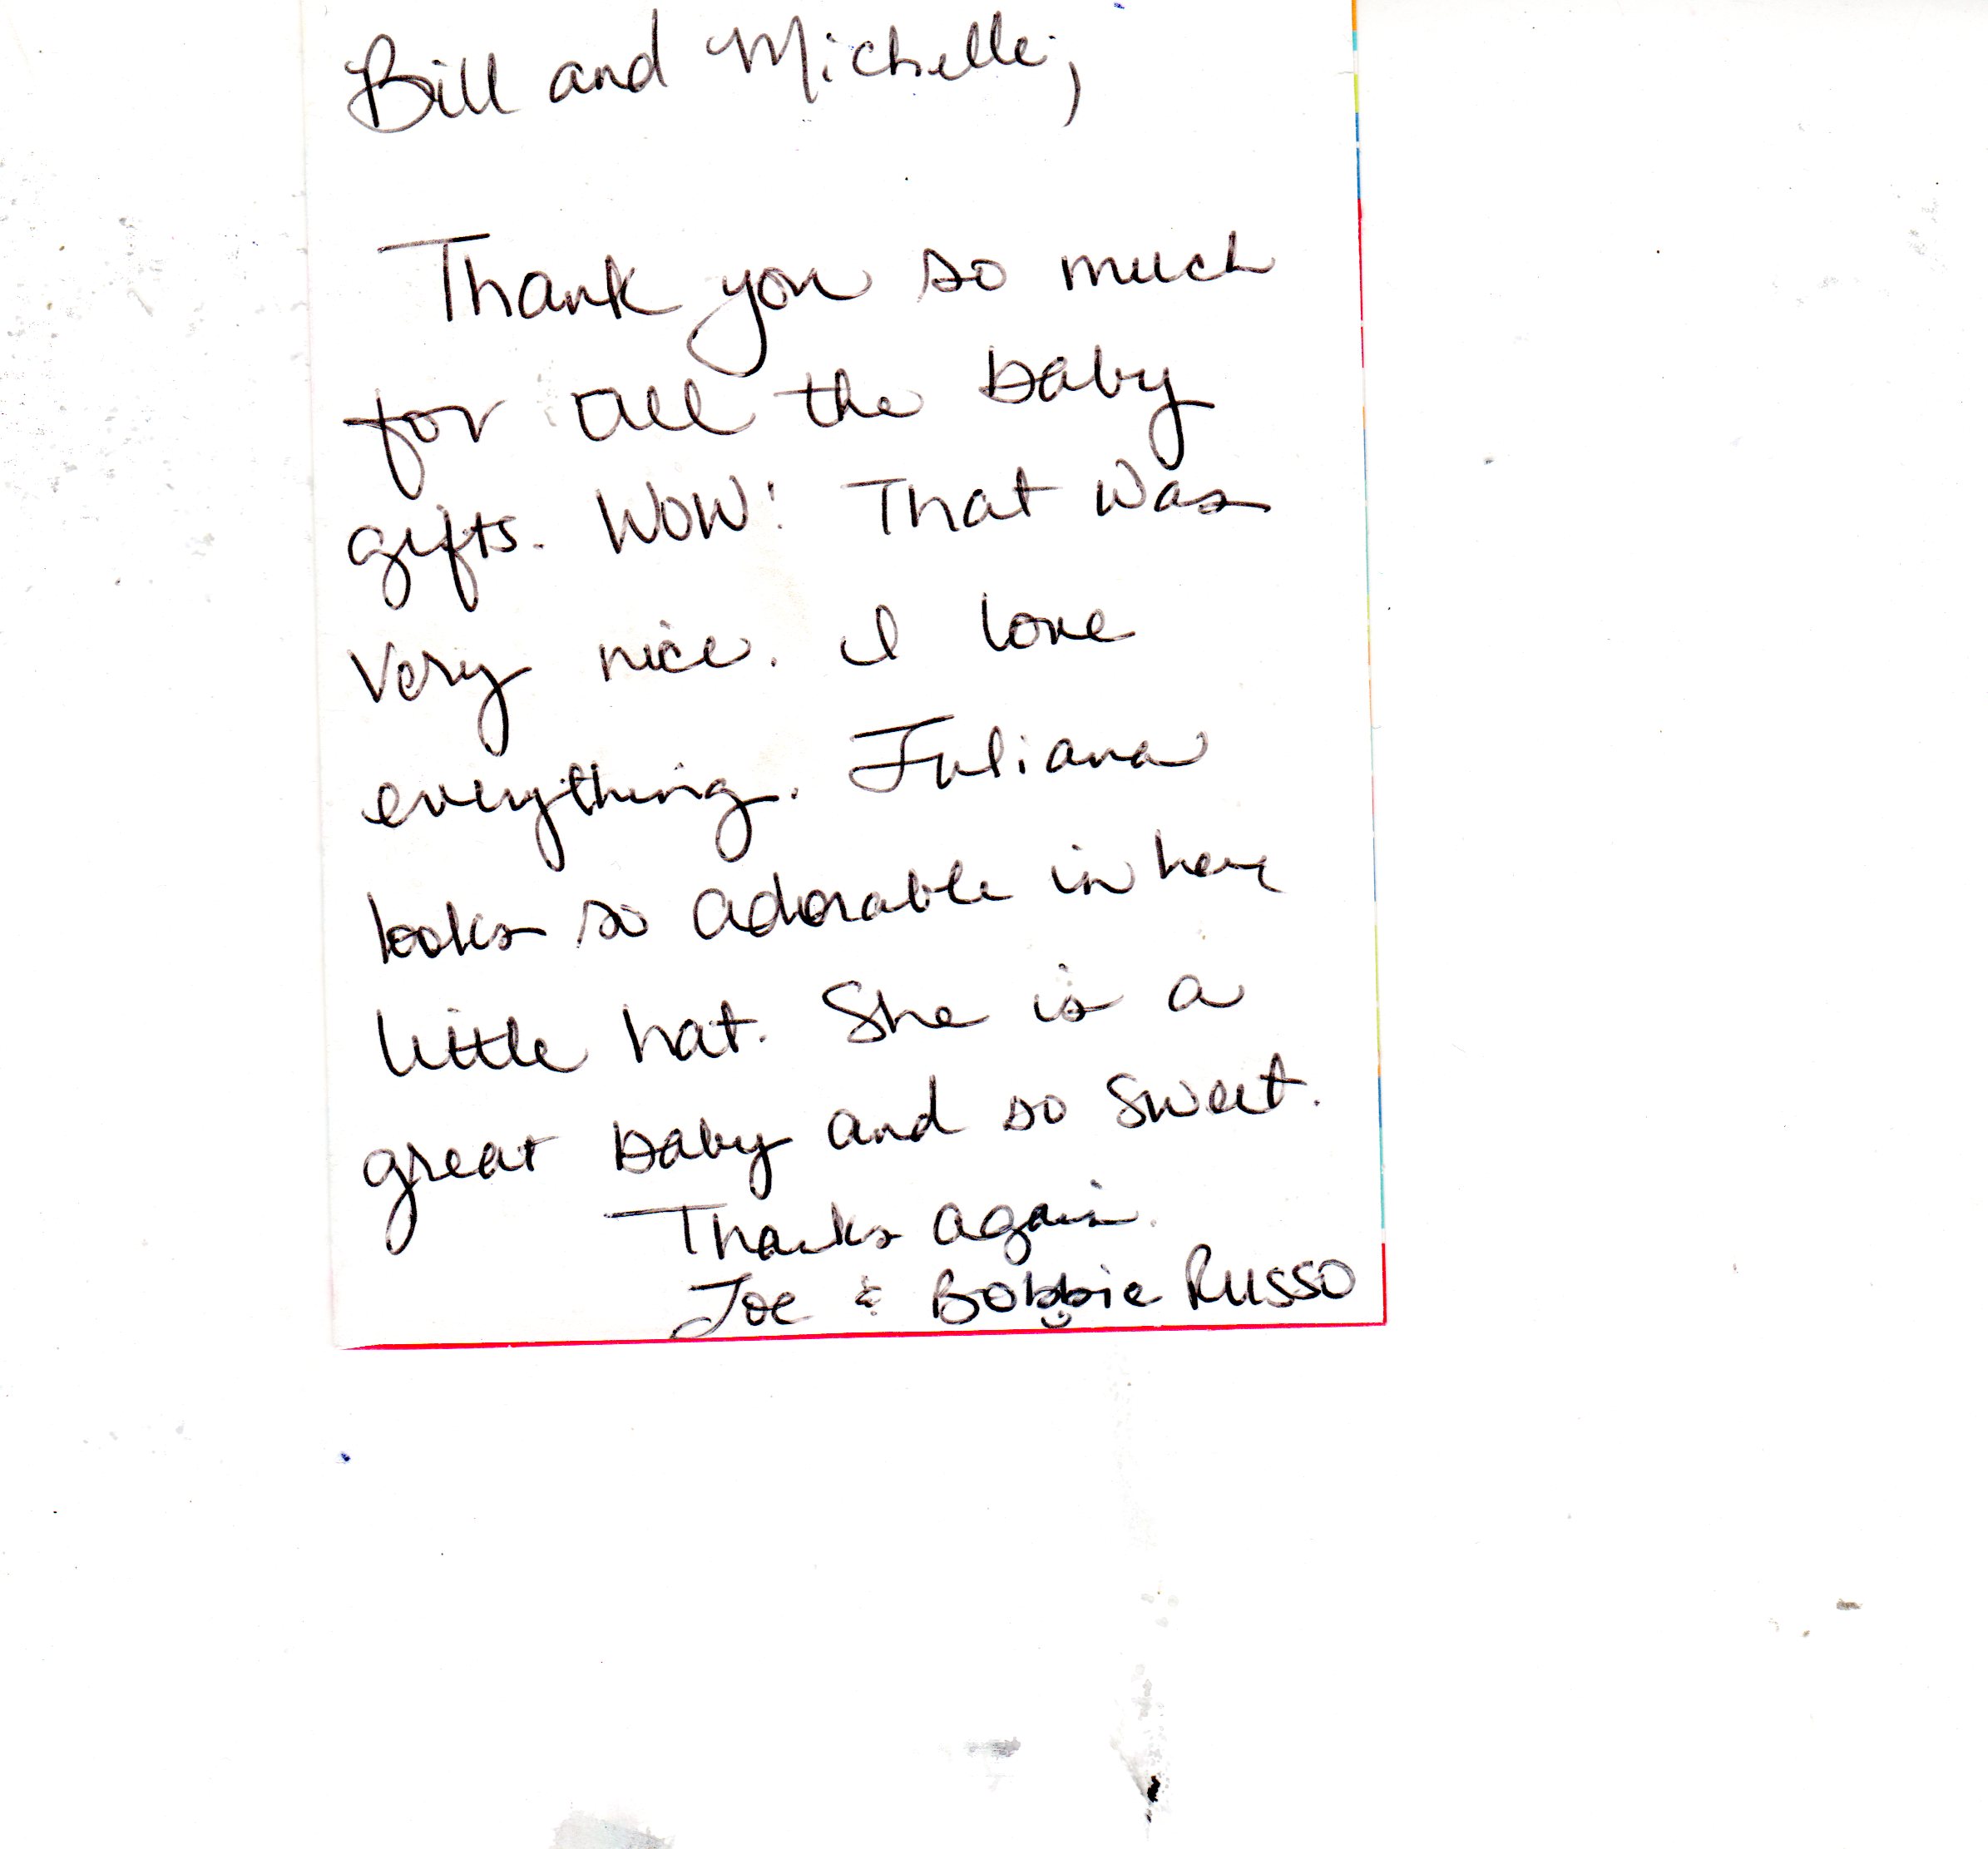 Bill and Michelle,
Thank you so much
for all the baby
gifts. WOW! That was
very nice. I love
everything. Juliana
looks so adorable in her
little hat. She is a
great baby and so sweet.
Thanks again.
Joe & Bobbie Russo